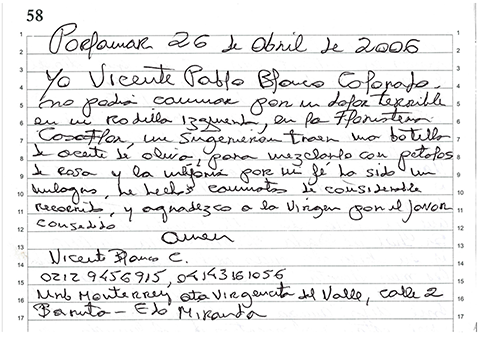 58
Porlamar 26 de Abril de 2006
Yo Vicente Pablo Blanco Colorado
no podia caminar por un dolor terrible
en mi rodilla izquierda, en la Floristeria
CosaFlor, me sugirieron traer una botella
de aceite de oliva, para mezclarlo con petalos
de rosa y la mejoria por mi fé ha sido un
milagro, he hecho caminatas de considerable
recorrido, y agradezco a la Virgen por el favor
consedido
Amen
Vicente Blanco C.
0212 9456915, 04143161056
Urb Monterrey qta Virgencita del Valle, calle 2
Baruta - Edo Miranda